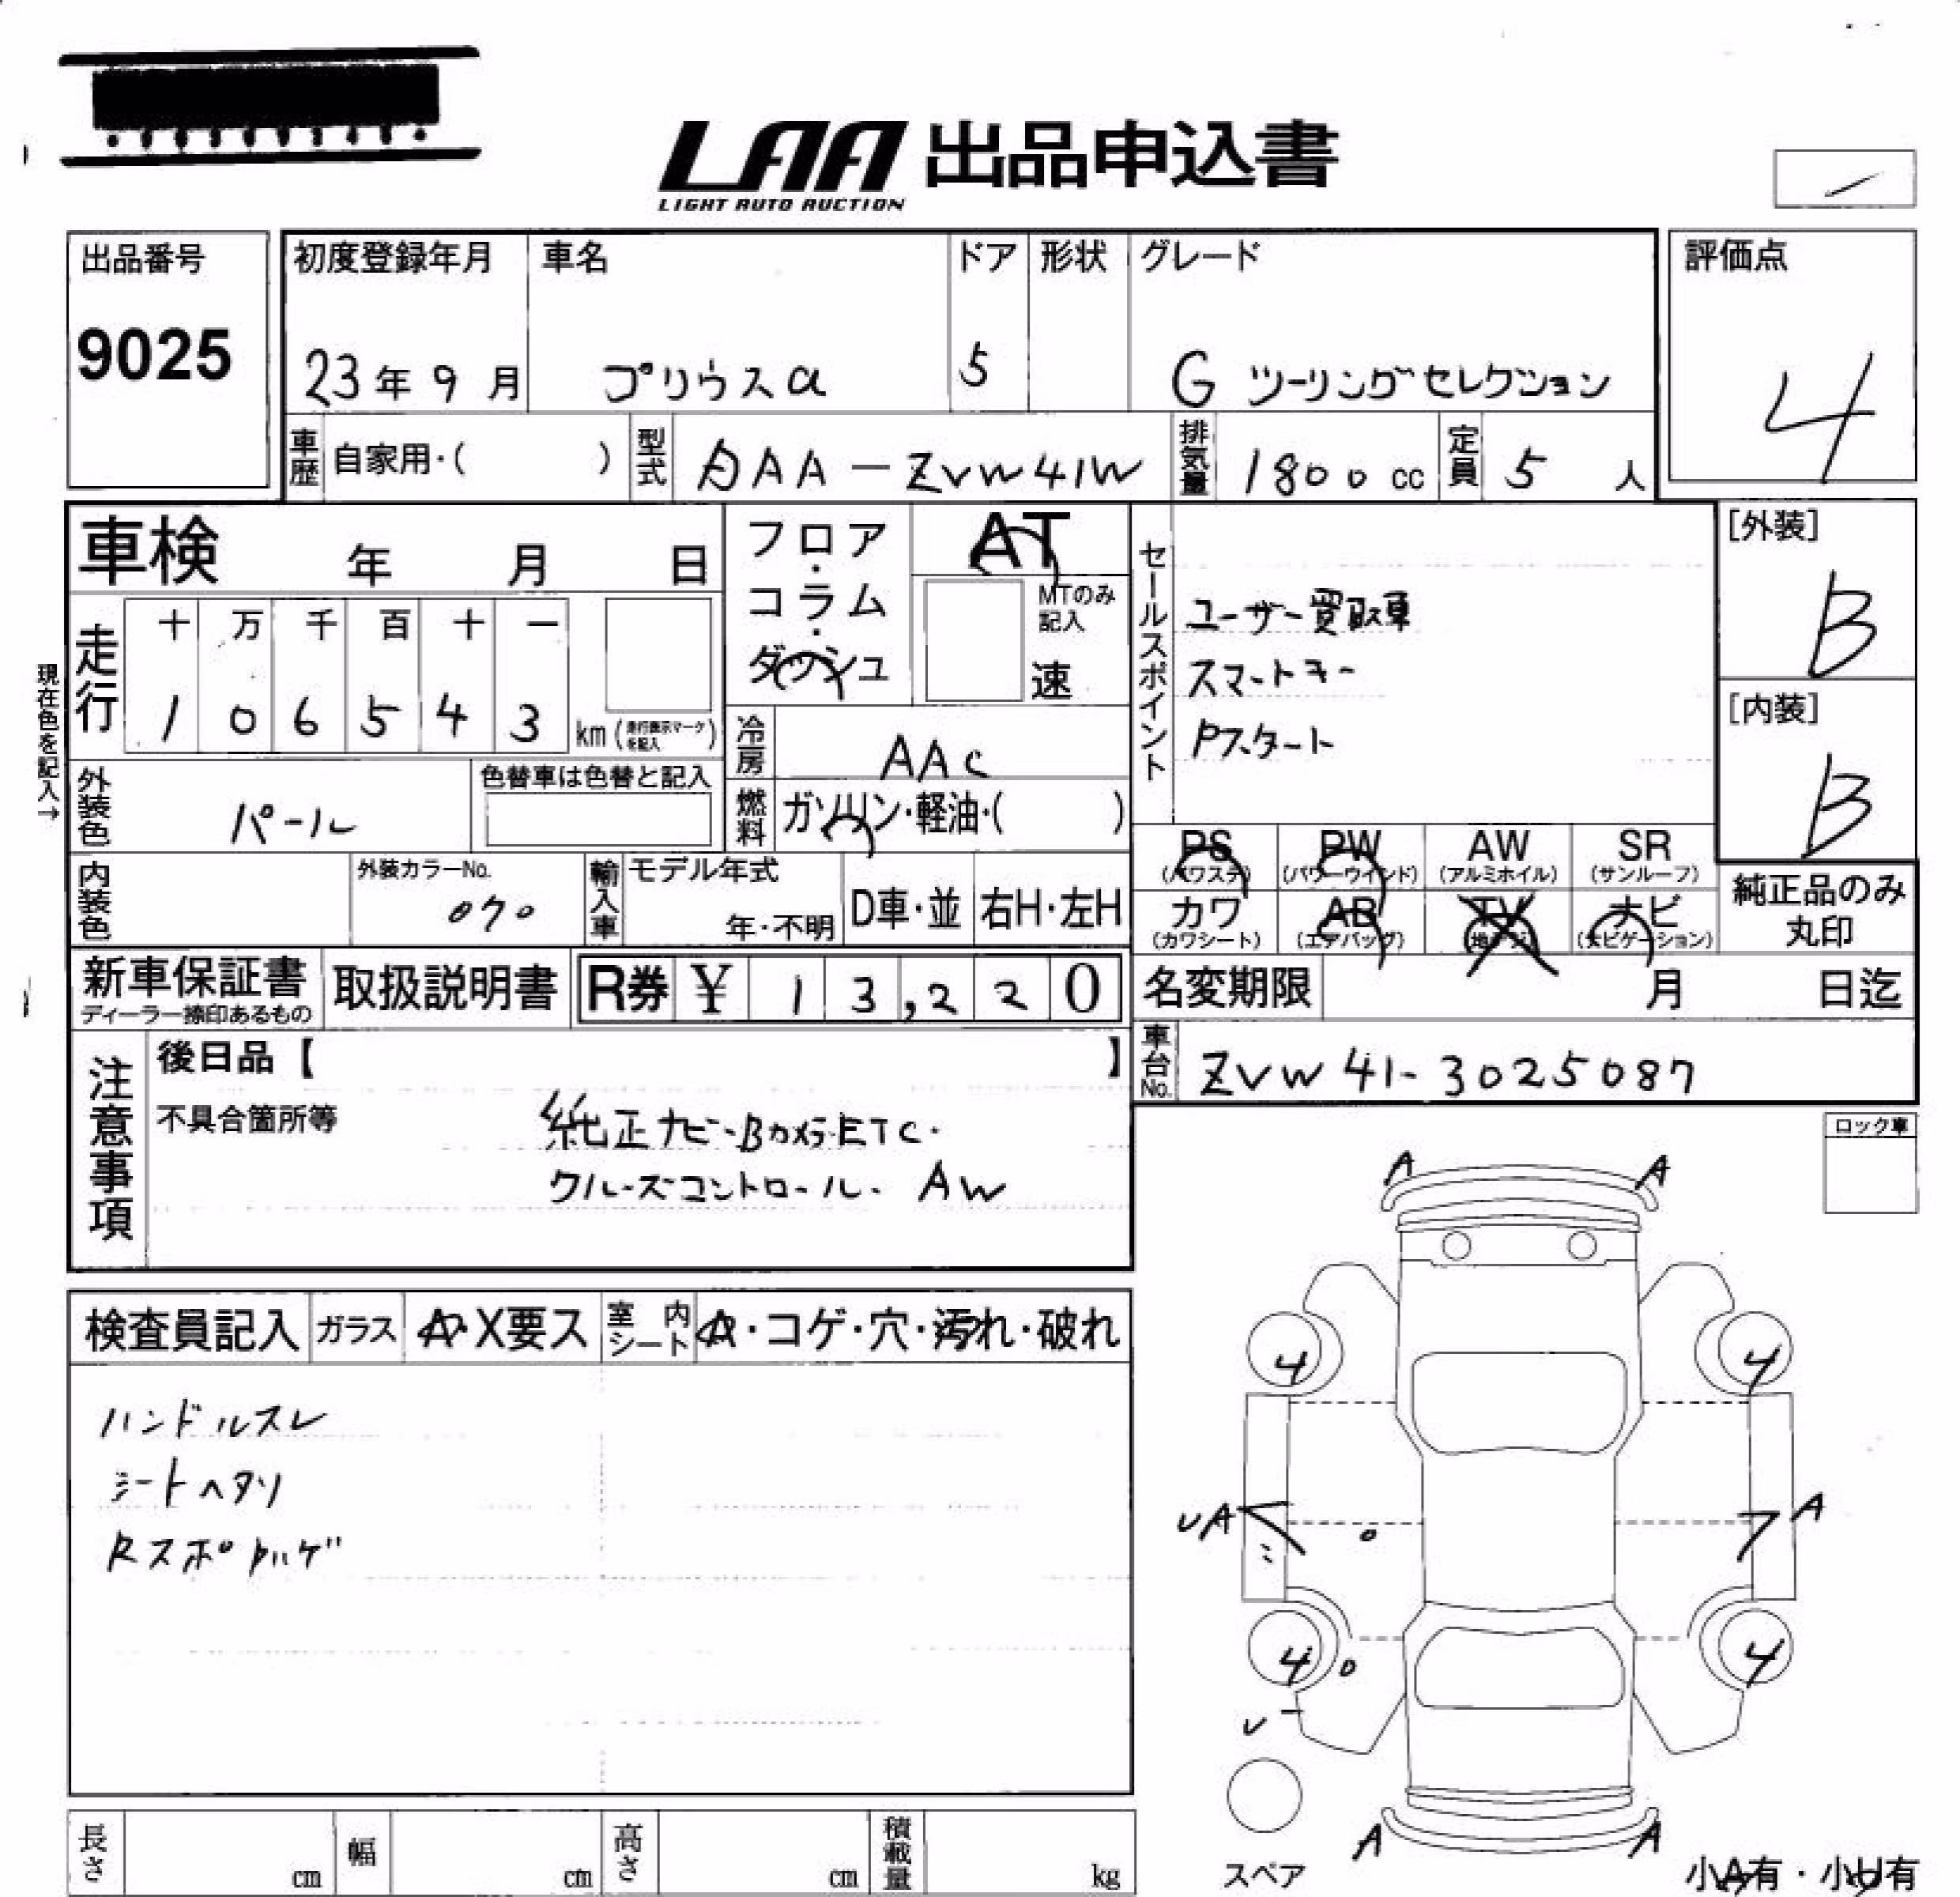 LAA 出品申込書
LIGHT AUTO AUCTION
出品番号
9025
初度登録年月
23年 9 月
車名
プリウスα
ドア
5
形状
グレード
G ツーリングセレクション
評価点
4
車歴
自家用・( )
型式
DAA-ZVW41W
排気量
1800 cc
定員
5 人
車検 年 月 日
フロア・コラム・ダッシュ
AT
MTのみ記入
速
セールスポイント
ユーザー買取車
スマートキー
Pスタート
[外装]
B
[内装]
B
現在色を記入→
走行
十 万 千 百 十 一
1 0 6 5 4 3
km(走行表示マークを記入)
冷房
AAC
外装色
パール
色替車は色替と記入
燃料
ガソリン・軽油・( )
PS
(パワステ)
PW
(パワーウインド)
AW
(アルミホイル)
SR
(サンルーフ)
カワ
(カワシート)
AB
(エアバッグ)
TV
(地デジ)
ナビ
(ナビゲーション)
純正品のみ
丸印
内装色
外装カラーNo.
070
輸入車
モデル年式
年・不明
D車・並
右H・左H
新車保証書
ディーラー捺印あるもの
取扱説明書
R券 ¥ 13,220
名変期限 月 日迄
車台No.
ZVW41-3025087
注意事項
後日品【 】
不具合箇所等
純正ナビ・Bカメラ・ETC・
クルーズコントロール・AW
ロック車
検査員記入
ガラス
A・X要ス
室内シート
A・コゲ・穴・汚れ・破れ
ハンドルスレ
シートヘタリ
A A
4 4
UA A
4 4
U
A A
スペア
小A有・小U有
長さ cm
幅 cm
高さ cm
積載量 kg